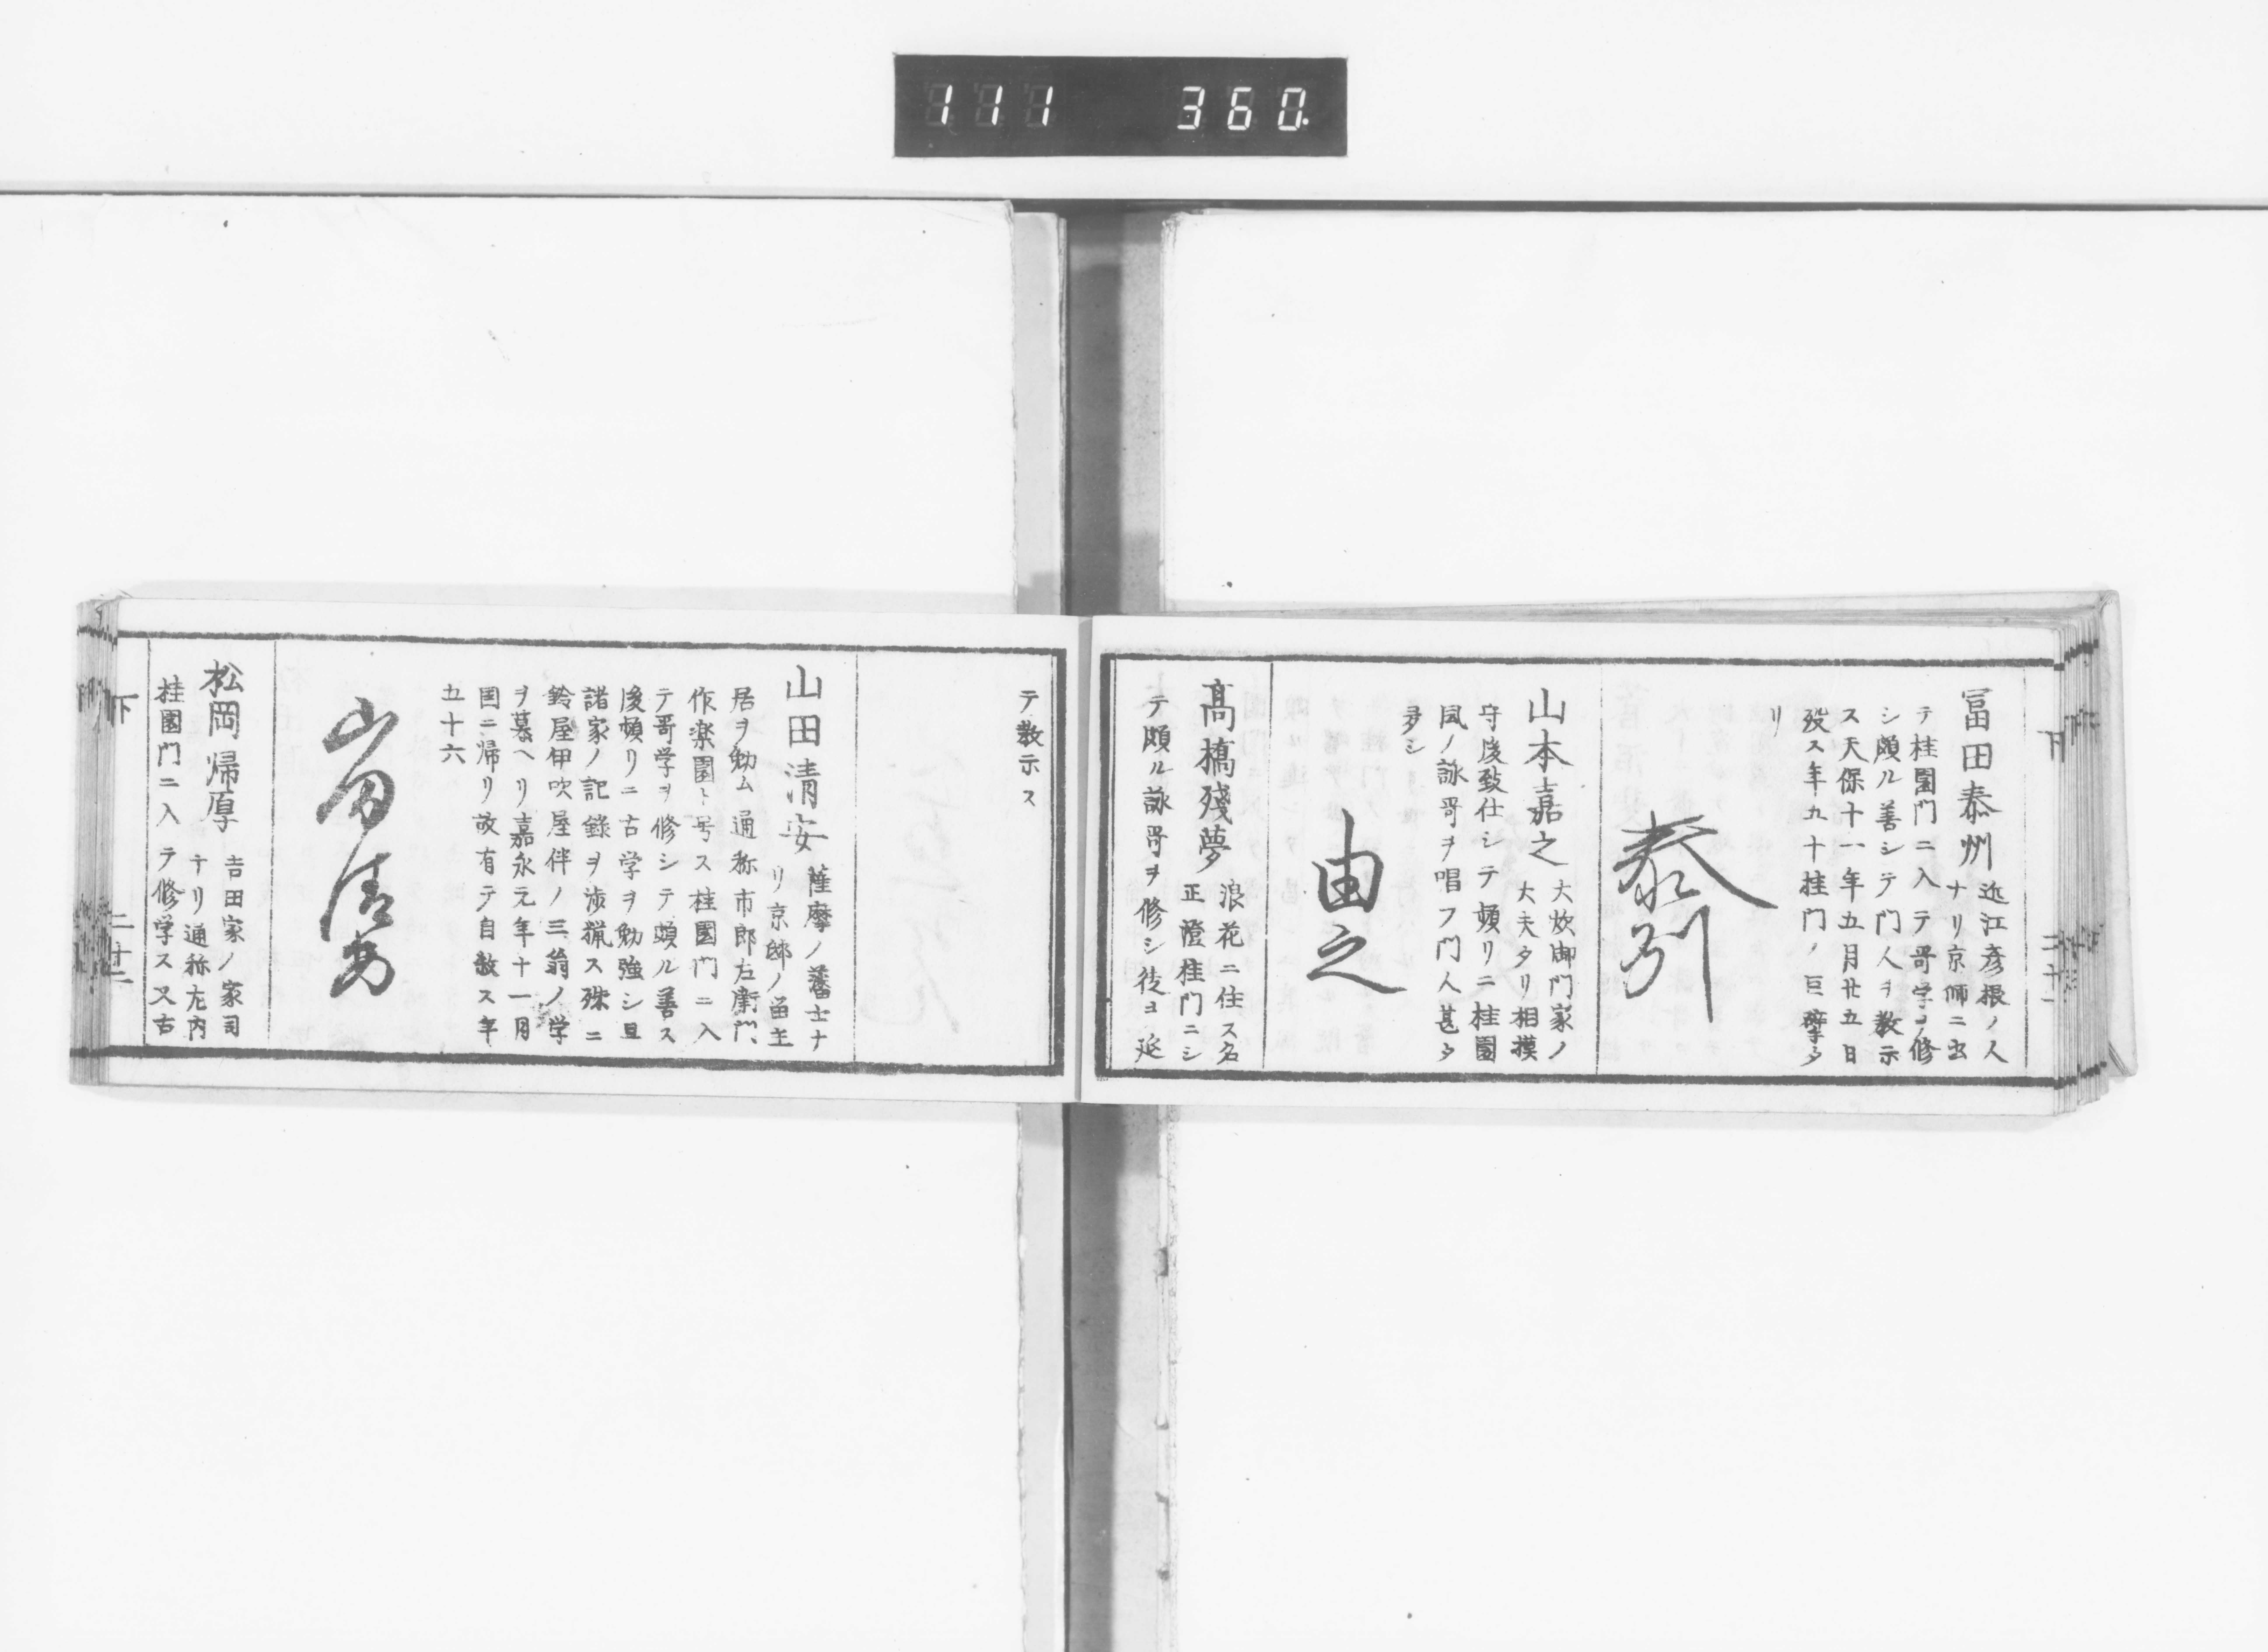 111 360.
下
二十一
冨田泰州 近江彦根ノ人
ナリ京師ニ出
テ桂園門ニ入テ哥学ヲ修
シ頗ル善シテ門人ヲ教示
ス天保十一年五月廿五日
歿ス年九十桂門ノ巨擘タ
リ
泰州
山本嘉之 大炊御門家ノ
大夫タリ相摸
守後致仕シテ頻リニ桂園
風ノ詠哥ヲ唱フ門人甚タ
多シ
由之
髙橋残夢 浪花ニ住ス名
正澄桂門ニシ
テ頗ル詠哥ヲ修シ徒ヨ延
テ教示ス
山田清安 薩摩ノ藩士ナ
リ京邸ノ畄主
居ヲ勤ム通称市郎左衛門、
作楽園ト号ス桂園門ニ入
テ哥学ヲ修シテ頗ル善ス
後頻リニ古学ヲ勉強シ且
諸家ノ記録ヲ渉猟ス殊ニ
鈴屋伊吹屋伴ノ三翁ノ学
ヲ慕ヘリ嘉永元年十一月
国ニ帰リ故有テ自殺ス年
五十六
山田清安
松岡帰厚 吉田家ノ家司
ナリ通称左内
桂園門ニ入テ修学ス又古
下
二十二